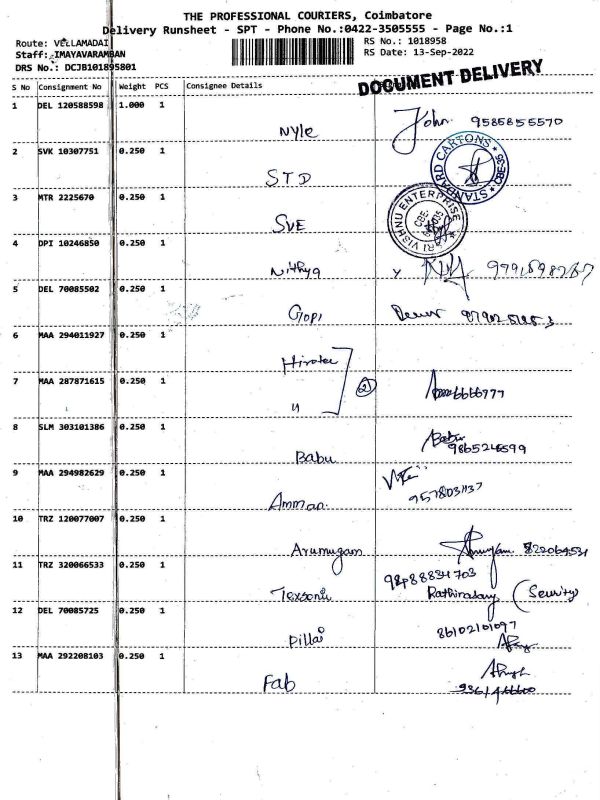 THE PROFESSIONAL COURIERS, Coimbatore
Delivery Runsheet - SPT - Phone No.:0422-3505555 - Page No.:1
Route: VELLAMADAI
RS No.: 1018958
Staff: IMAYAVARAMBAN
RS Date: 13-Sep-2022
DRS No.: DCJB101895801
DOCUMENT DELIVERY
S No Consignment No Weight PCS Consignee Details
1 DEL 120588598 1.000 1 Nyle John 9585855570
2 SVK 10307751 0.250 1 STD
STANDARD CARTONS * CBE-35 *
3 MTR 2225670 0.250 1 SVE
SRI VISHNU ENTERPRISE
4 DPI 10246850 0.250 1 Nithya
5 DEL 70085502 0.250 1 Gopi
6 MAA 294011927 0.250 1
7 MAA 287871615 0.250 1 " 2
8 SLM 303101386 0.250 1 Babu Babu
9865246599
9 MAA 294982629 0.250 1 Amman
10 TRZ 120077007 0.250 1 Arumugam
11 TRZ 320066533 0.250 1 Texsonic
12 DEL 70085725 0.250 1 Pillai 86102101097
13 MAA 292208103 0.250 1 Fab